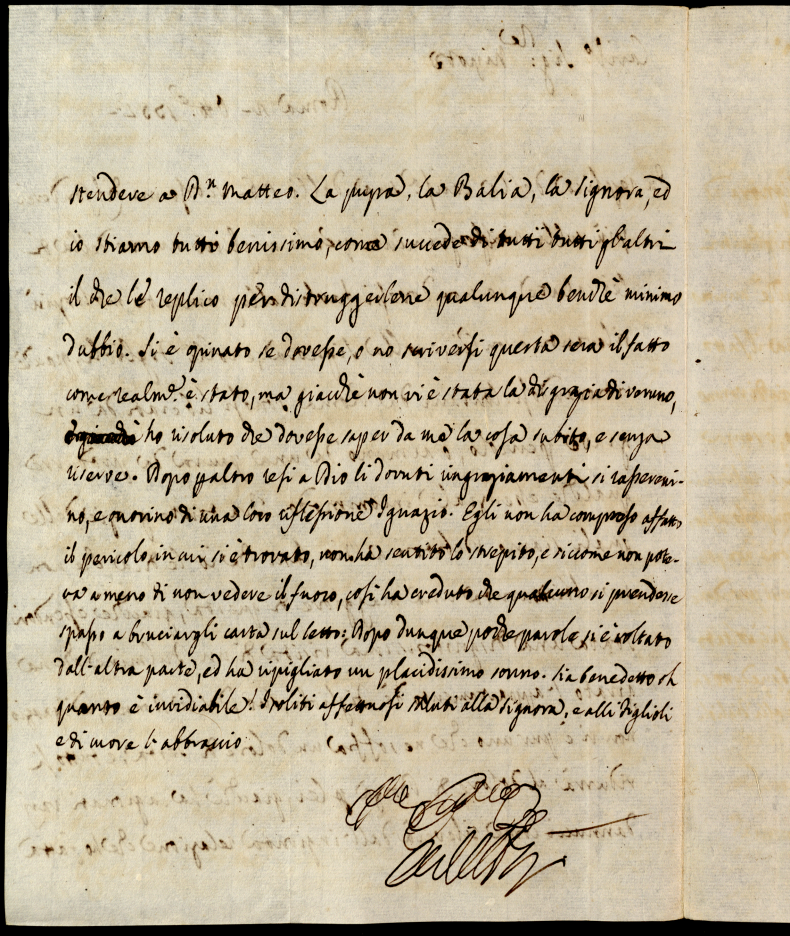 stendere a D.n Matteo. La pupa, la Balia, la signora, ed
io stiamo tutti benissimo, come succede di tutti tutti gl'altri
il che le replico per distruggerlene qualunque benchè minimo
dubbio. Si è opinato se dovesse, o no scriversi questa sera il fatto
come realm.e è stato, ma giacchè non vi è stata la disgrazia di veruno,
ho risoluto che dovesse saper da me la cosa subito, e senza
riserve. Dopo p altro resi a Dio li dovuti ringraziamenti si rassereni-
no, e onorino di una loro riflessione Ignazio. Egli non ha compreso affatto
il pericolo in cui si è trovato, non ha sentito lo strepito, e siccome non pote-
va a meno di non vedere il fuoco, così ha creduto che qualcuno si prendesse
spasso a bruciargli carta sul letto; Dopo dunque poche parole si è voltato
dall'altra parte, ed ha ripigliato un placidissimo sonno. Sia benedetto oh
quanto è invidiabile! I soliti affettuosi saluti alla signora, e alli figlioli
e di cuore l'abbraccio